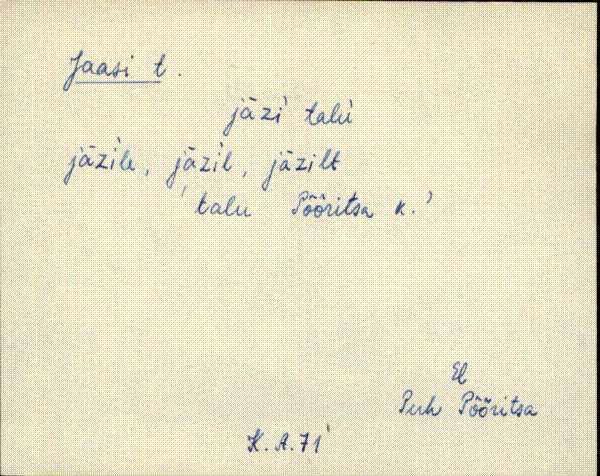 Jaasi t.
jāzi̍ talù
jāzile, jāzil, jāzilt
'talu Pööritsa k.'
El
Puh Pööritsa
K. A. 71